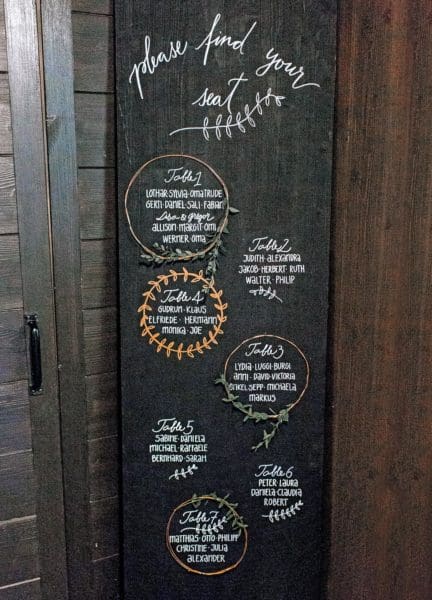 please find your
seat
Table 1
LOTHAR·SYLVIA·OMA TRUDE
GERTI·DANIEL·SALI·FABIAN
Lisa & Gregor
ALLISON·MARGIT·OMI
WERNER·OMA
Table 2
JUDITH·ALEXANDRA
JAKOB·HERBERT·RUTH
WALTER·PHILIP
Table 4
GUDRUN·KLAUS
ELFRIEDE·HERMANN
MONIKA·JOE
Table 3
LYDIA·LUGGI·BURGI
ANNI·DAVID·VIKTORIA
ONKEL SEPP·MICHAELA
MARKUS
Table 5
SABINE·DANIELA
MICHAEL·RAFFAELE
BERNHARD·SARAH
Table 6
PETER·LAURA
DANIELA·CLAUDIA
ROBERT
Table 7
MATTHIAS·OTTO·PHILIPP
CHRISTINE·JULIA
ALEXANDER